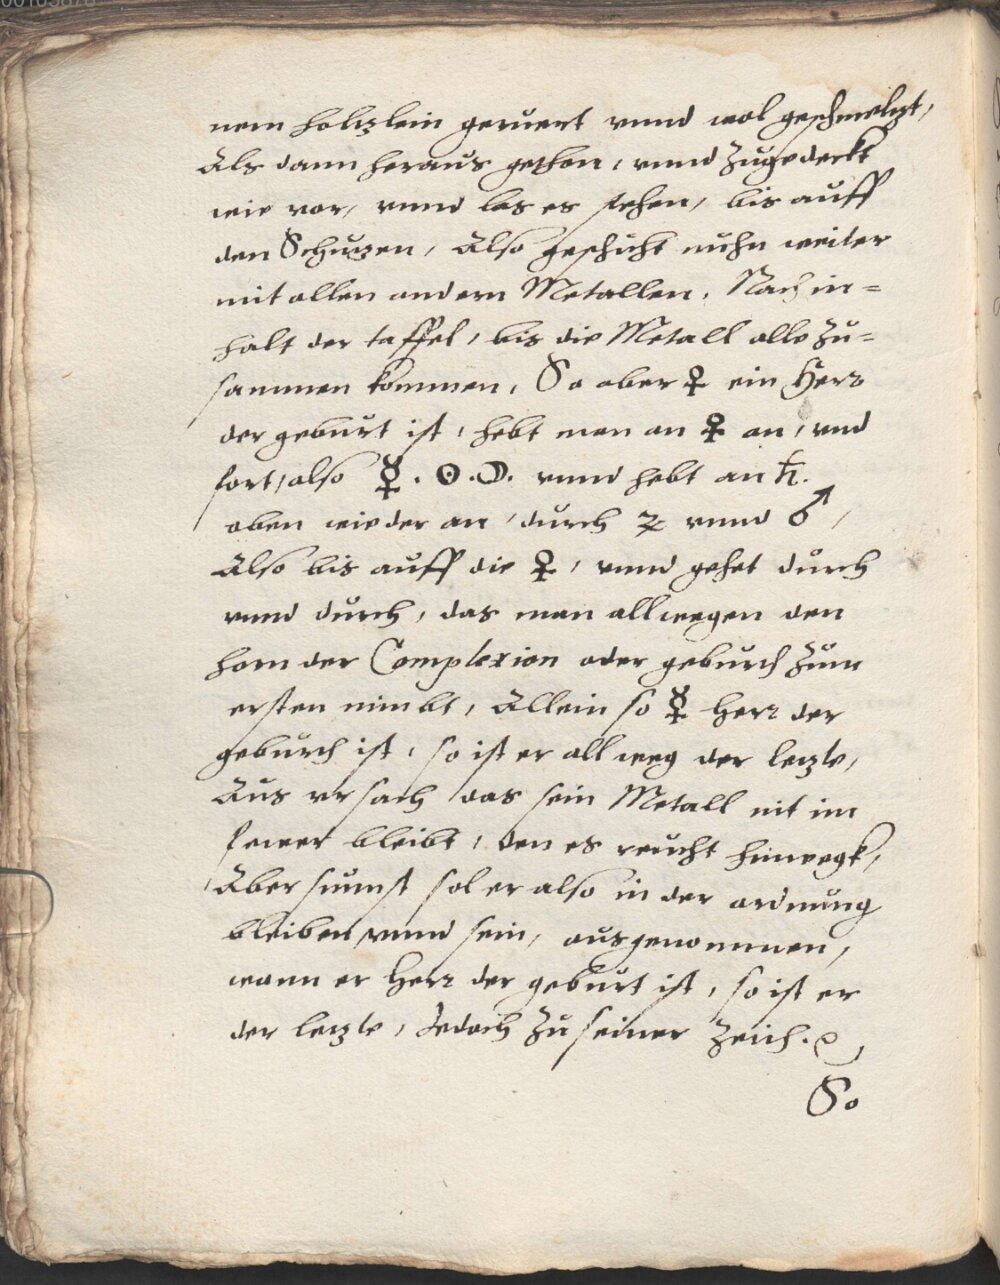 nem holtzlein geruert vnnd wol geschmeltzt,
Als dann heraus gethon, vnnd zugedeckt
wie vor, vnnd las es stehen, bis auff
den Schutzen, Also geschicht nuhn weiter
mit allen andern Metallen, Nach in=
halt der taffel, bis die Metall alle zu=
sammen kommen, So aber ♀ ein Herr
der geburt ist, hebt man an ♀ an, vnd
fort, also ☿. ☉. ☽. vnnd hebt an ♄.
oben wieder an, durch ♃ vnnd ♂,
Also bis auff die ♀, vnnd gehet durch
vnnd durch, das man allwegen den
hern der Complexion oder geburth zum
ersten nimbt, Allein so ☿ Herr der
geburth ist, so ist er allweg der letzte,
Aus vrsach das sein Metall nit im
fewer bleibt, den es reucht hinwegk,
Aber sunst sol er also in der ordnung
bleiben vnnd sein, ausgenommen,
wann er Herr der geburt ist, so ist er
der letzte, Jedoch zu seiner Zeit.
So